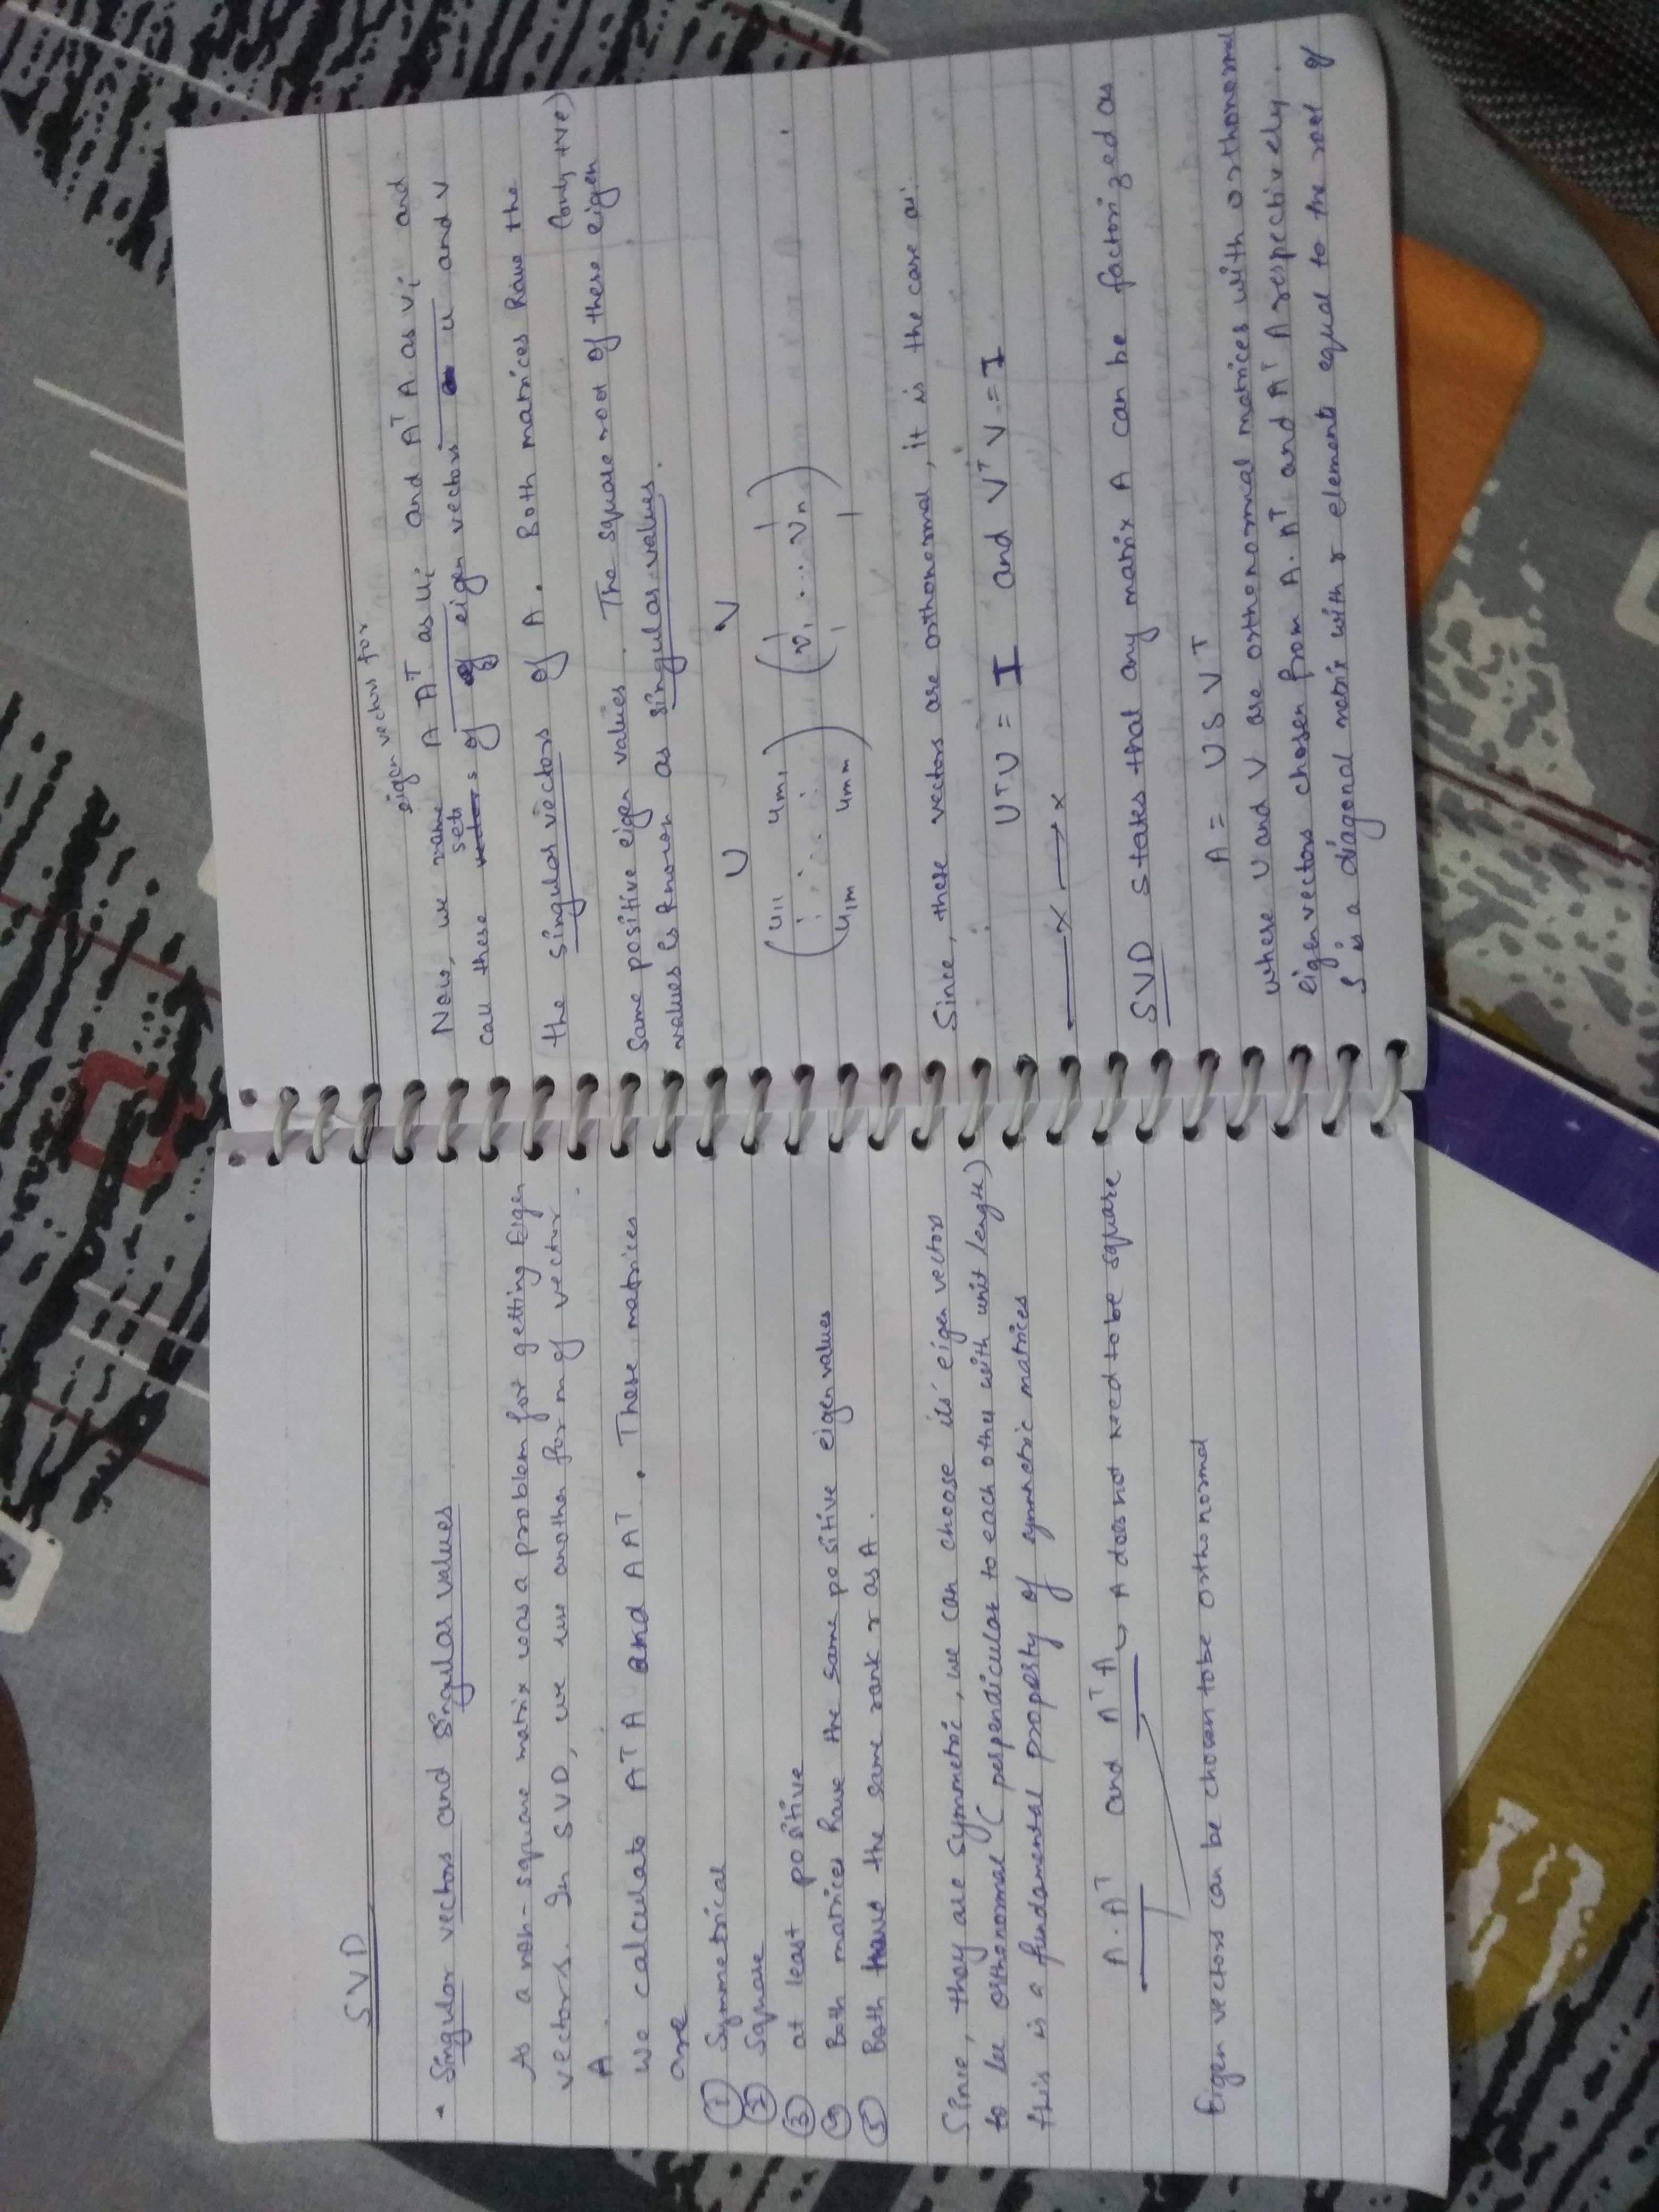 SVD
- Singular vectors and singular values
As a non-square matrix was a problem for getting Eigen
vectors. In SVD, we use another form of vector
A.
We calculate AᵀA and AAᵀ. These matrices
are
① Symmetrical
② Square
③ at least positive
④ Both matrices have the same positive eigen values
⑤ Both have the same rank r as A.
Since, they are symmetric, we can choose its' eigen vectors
to be orthonormal (perpendicular to each other with unit length)
this is a fundamental property of symmetric matrices
A·Aᵀ and AᵀA → A does not need to be square
Eigen vectors can be chosen to be orthonormal
eigen vectors for
Now, we name AAᵀ as uᵢ and AᵀA as vᵢ and
sets
call these vectors of eigen vectors u and v
the singular vectors of A. Both matrices have the
(only +ve)
same positive eigen values. The square root of these eigen
values is known as singular values.
U V
(u₁₁ uₘ₁
⋮ ⋱ ⋮ (v₁ ... vₙ)
u₁ₘ uₘₘ)
Since, these vectors are orthonormal, it is the case as:
UᵀU = I and VᵀV = I
x → x
SVD states that any matrix A can be factorized as
A = USVᵀ
where U and V are orthonormal matrices with orthonormal
eigen vectors chosen from A.Aᵀ and AᵀA respectively.
S is a diagonal matrix with r elements equal to the root of